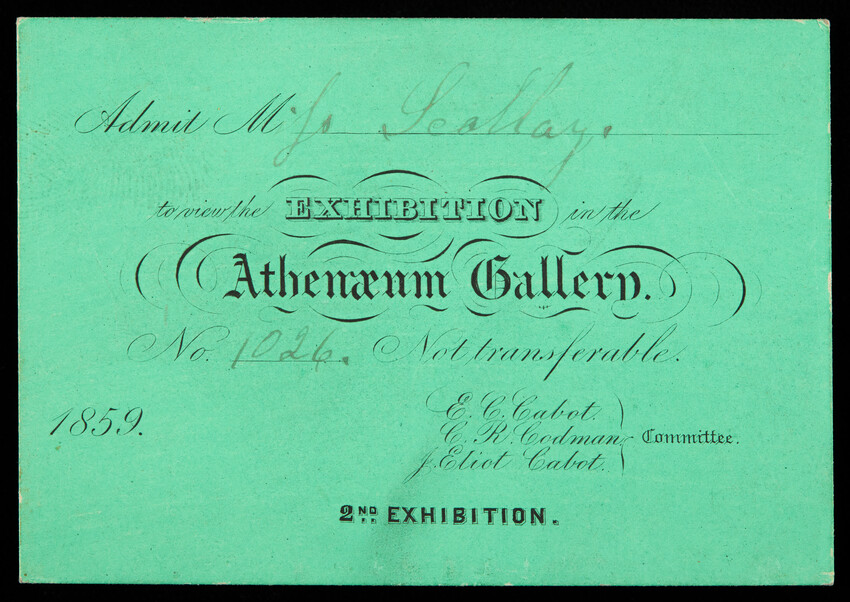 Admit Miss Scollay.
to view the EXHIBITION in the
Athenæum Gallery.
No. 1026. Not transferable.
1859.
E. C. Cabot.
C. R. Codman
J. Eliot Cabot.
Committee.
2ND EXHIBITION.